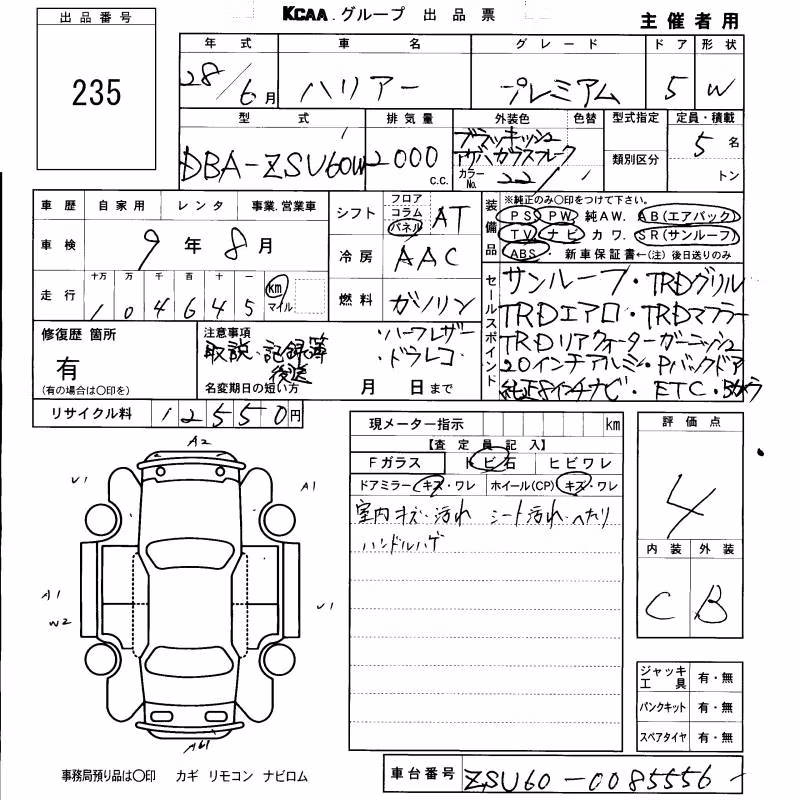 出品番号
235
KCAA.グループ 出品票
主催者用
年式 車名 グレード ドア 形状
28/6月 ハリアー プレミアム 5 W
型式 排気量 外装色 色替 型式指定 定員・積載
DBA-ZSU60W 2000 c.c. ブラッキッシュ
アゲハガラスフレーク
カラーNo. 221
類別区分
5名
トン
車歴 自家用 レンタ 事業.営業車
車検 9年8月
走行 十万 万 千 百 十 一
104645 km マイル
シフト フロア コラム パネル AT
冷房 AAC
燃料 ガソリン
装備品
※純正のみ〇印をつけて下さい。
PS PW 純AW. AB(エアバック)
TV ナビ カワ. SR(サンルーフ)
ABS ・新車保証書←(注)後日送りのみ
セールスポイント
サンルーフ・TRDグリル
TRDエアロ・TRDマフラー
TRDリアクォーターガーニッシュ
20インチアルミ・Pバックドア
純正8インチナビ・ETC・Bカメラ
修復歴 箇所
有
(有の場合は〇印を)
注意事項
取説・記録簿
後送
・ハーフレザー
・ドラレコ
名変期日の短い方 月 日まで
リサイクル料 12550円
現メーター指示 km
【査定員記入】
Fガラス トビ石 ヒビワレ
ドアミラー キズ・ワレ ホイール(CP) キズ・ワレ
室内キズ・汚れ シート汚れ・ヘタリ
ハンドルハゲ
評価点
4
内装 外装
C B
A2
U1
A1
A1
W2
U1
ジャッキ工具 有・無
パンクキット 有・無
スペアタイヤ 有・無
事務局預り品は〇印 カギ リモコン ナビロム
車台番号 ZSU60-0085556-